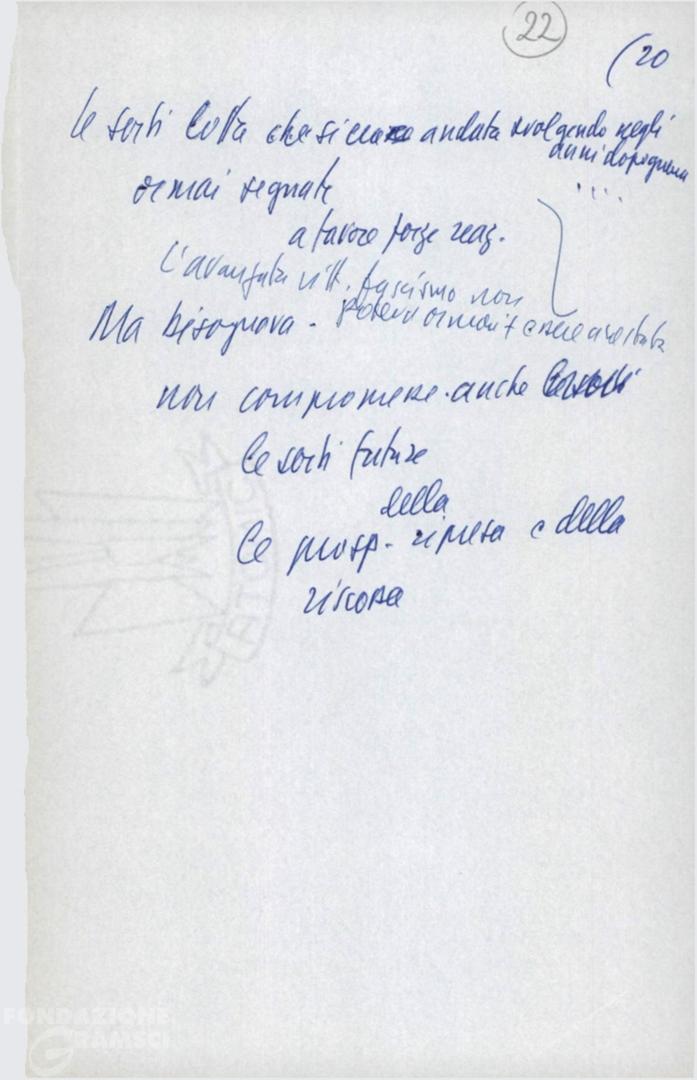 22
(20
le sorti lotta che si era andata svolgendo negli
anni dopoguerra
....
ormai segnate
a favore forze reaz.
L'avanzata vitt. fascismo non
poteva ormai + essere arrestata
Ma bisognava.
non compromettere anche le sorti
le sorti future
della
le prosp. ripresa e della
riscossa
FONDAZIONE
GRAMSCI